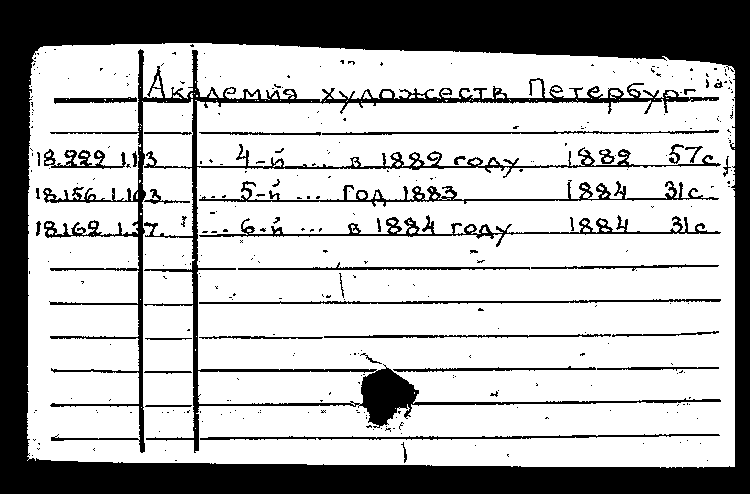 Академия художеств Петербург 1а
18.229 1.113 ... 4-й ... в 1882 году. 1882 57с.
18.156.1.103 ... 5-й ... Год 1883. 1884 31с.
18.162 1.37. ... 6-й ... в 1884 году 1884. 31с.